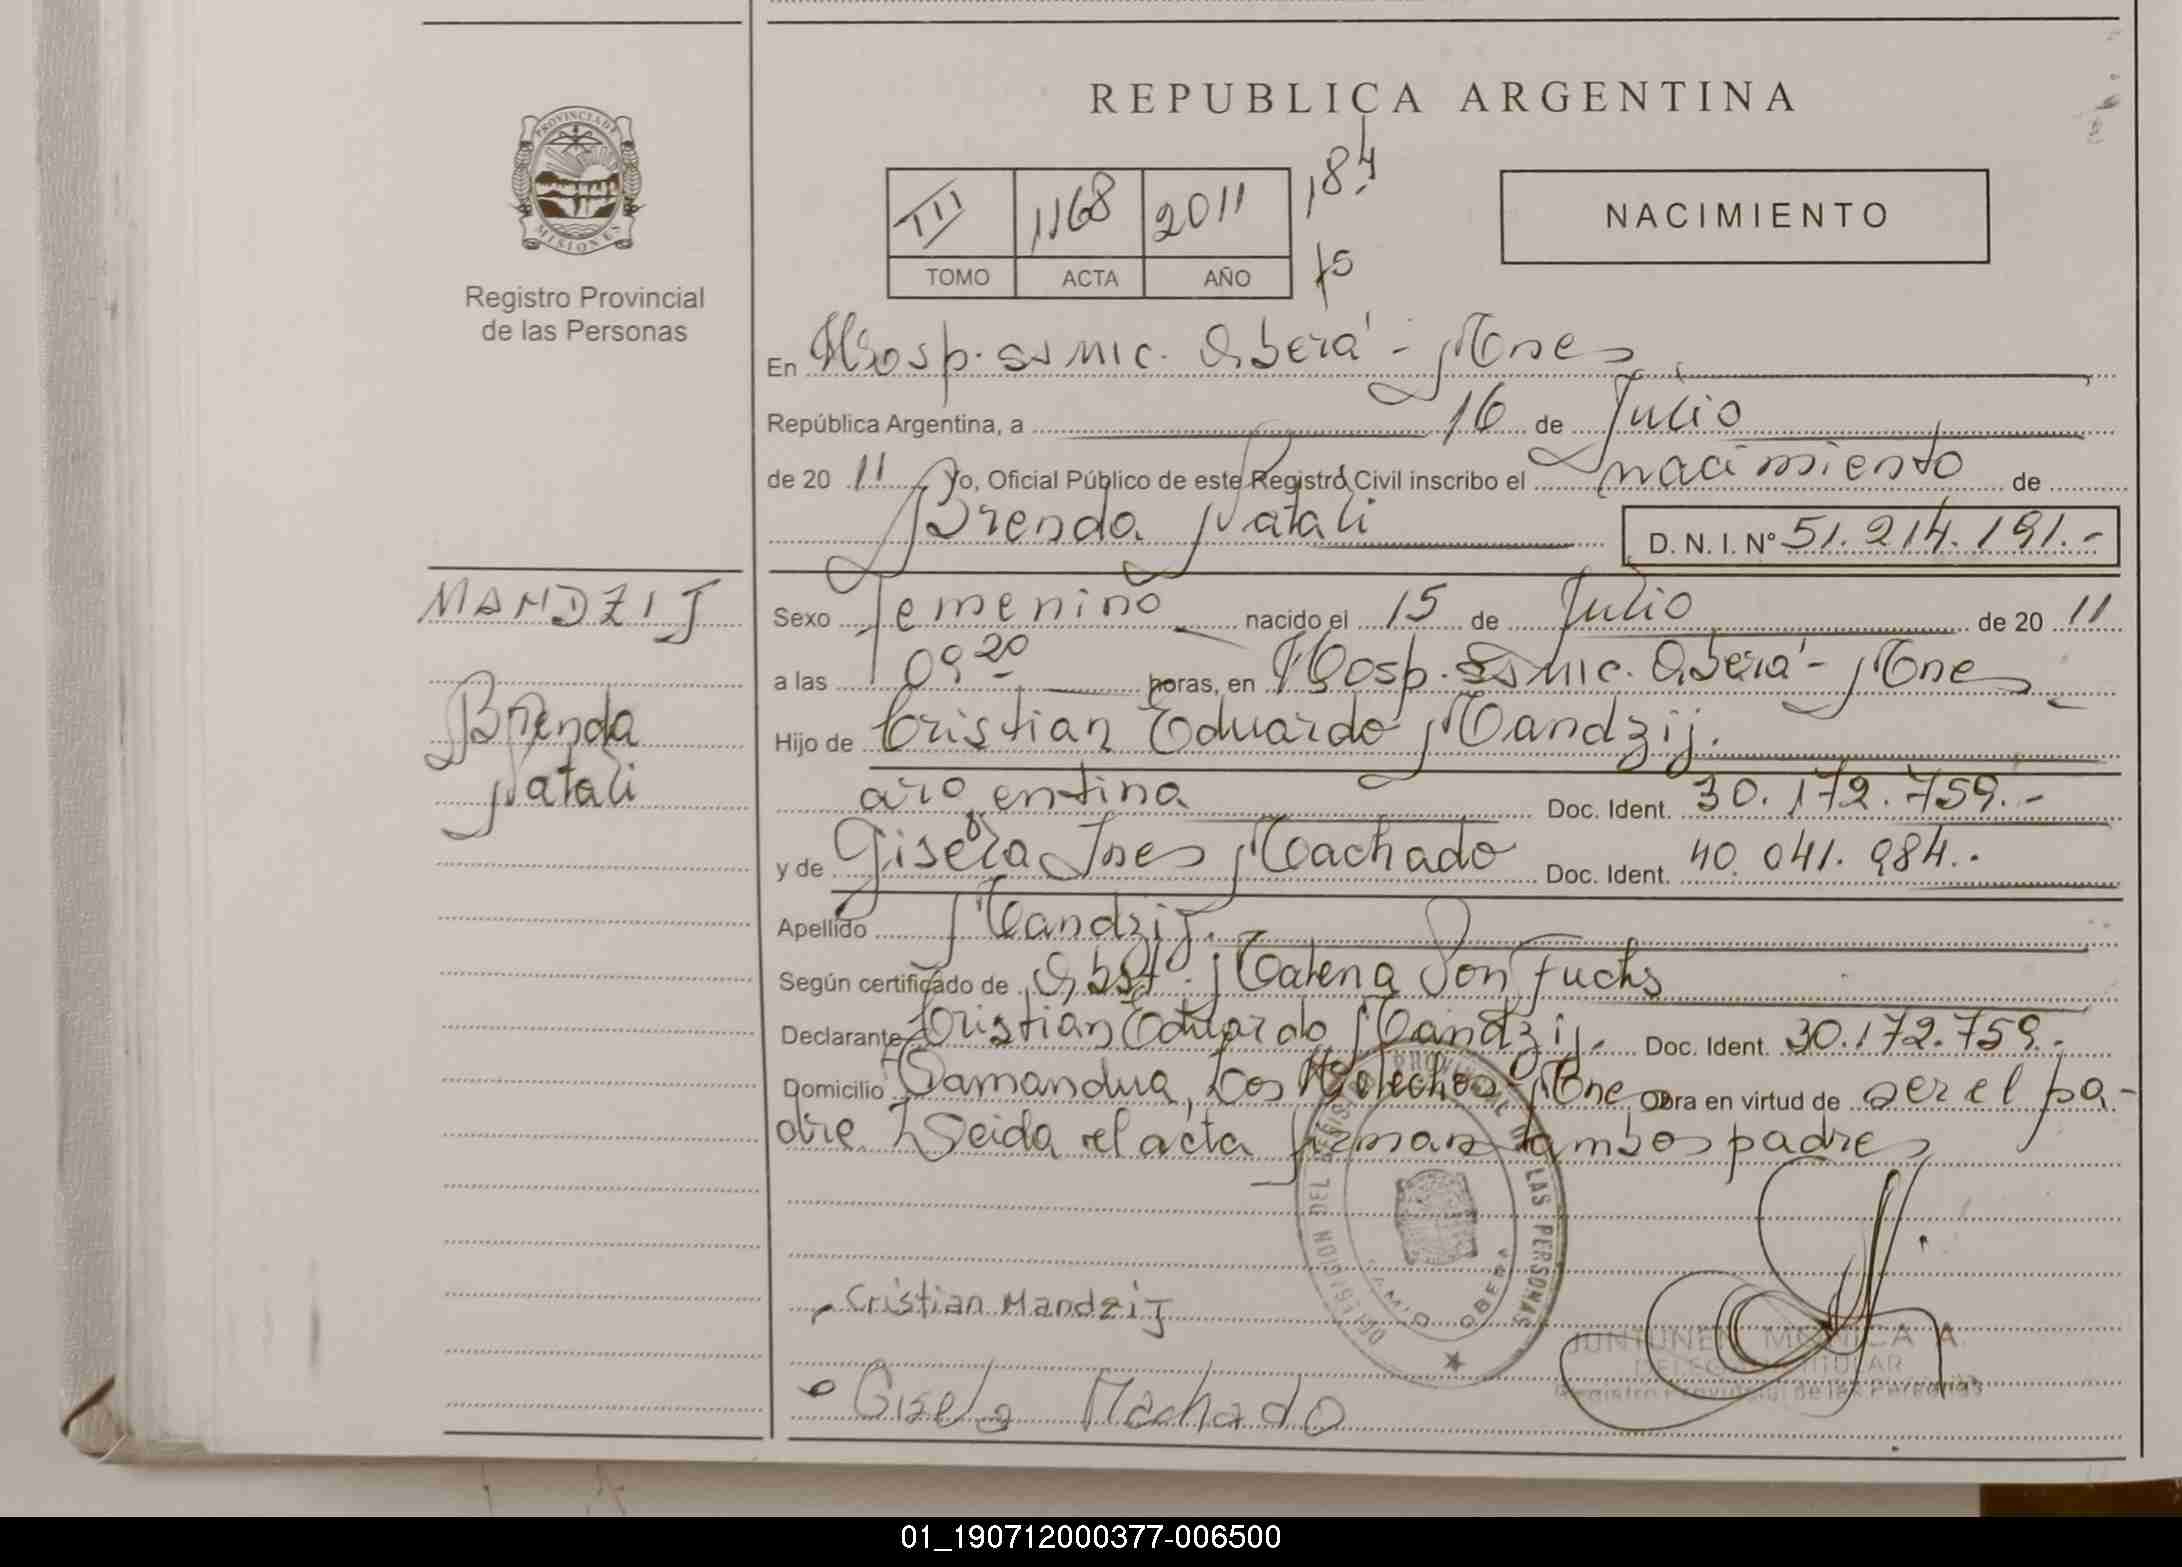 REPUBLICA ARGENTINA
PROVINCIA DE MISIONES
Registro Provincial
de las Personas
III 1168 2011 184
TOMO ACTA AÑO 75
NACIMIENTO
En Hosp. SS Mic. Oberá - Mnes
República Argentina, a 16 de Julio
de 20 11 Yo, Oficial Público de este Registro Civil inscribo el nacimiento de
Brenda Natali D. N. I. Nº 51.214.191.-
MANDZIJ
Brenda
Natali
Sexo femenino nacido el 15 de Julio de 20 11
a las 09 20 horas, en Hosp. SS Mic. Oberá - Mnes
Hijo de Cristian Eduardo Mandzij.
argentina Doc. Ident. 30.172.759.-
y de Gisela Ines Machado Doc. Ident. 40.041.984.-
Apellido Mandzij.
Según certificado de Obst. Malena Von Fuchs
Declarante Cristian Eduardo Mandzij.- Doc. Ident. 30.172.759.-
Domicilio Samandua, Los Helechos - Mnes Obra en virtud de ser el pa-
dre. Leida el acta firman ambos padres
DELEGACION DEL REGISTRO PROVINCIAL DE LAS PERSONAS
OBERA
Cristian Mandzij
JUNTUNEN MONICA A.
DELEGADA TITULAR
Registro Provincial de las Personas
Gisela Machado
01_190712000377-006500